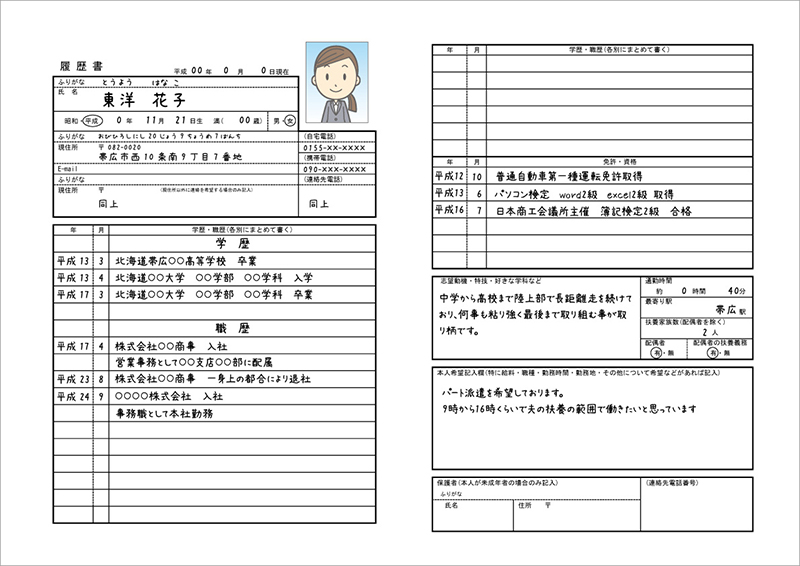 履歴書
平成 00 年 0 月 0 日現在
ふりがな とうよう はなこ
氏 名
東洋 花子
昭和・平成 0 年 11 月 21 日生 満 ( 00 歳) 男・女
ふりがな おびひろしにし20じょう9ちょうめ7ばんち
現住所 〒 082-0020
帯広市西10条南9丁目7番地
E-mail
(自宅電話)
0155-××-××××
(携帯電話)
090-×××-××××
ふりがな
(連絡先電話)
現住所 〒 (現住所以外に連絡を希望する場合のみ記入)
同上
同上
年 月 学歴・職歴(各別にまとめて書く)
学 歴
平成 13 3 北海道帯広○○高等学校 卒業
平成 13 4 北海道○○大学 ○○学部 ○○学科 入学
平成 17 3 北海道○○大学 ○○学部 ○○学科 卒業
職 歴
平成 17 4 株式会社○○商事 入社
営業事務として○○支店○○部に配属
平成 23 8 株式会社○○商事 一身上の都合により退社
平成 24 9 ○○○○株式会社 入社
事務職として本社勤務
年 月 学歴・職歴(各別にまとめて書く)
年 月 免許・資格
平成12 10 普通自動車第一種運転免許取得
平成13 6 パソコン検定 word2級 excel2級 取得
平成16 7 日本商工会議所主催 簿記検定2級 合格
志望動機・特技・好きな学科など
中学から高校まで陸上部で長距離走を続けて
おり、何事も粘り強く最後まで取り組む事が取
り柄です。
通勤時間
約 0 時間 40分
最寄り駅
帯広 駅
扶養家族数(配偶者を除く)
2 人
配偶者 配偶者の扶養義務
有・無 有・無
本人希望記入欄(特に給料・職種・勤務時間・勤務地・その他について希望などがあれば記入)
パート派遣を希望しております。
9時から16時くらいで夫の扶養の範囲で働きたいと思っています
保護者(本人が未成年者の場合のみ記入)
ふりがな
氏名 住所 〒
(連絡先電話番号)